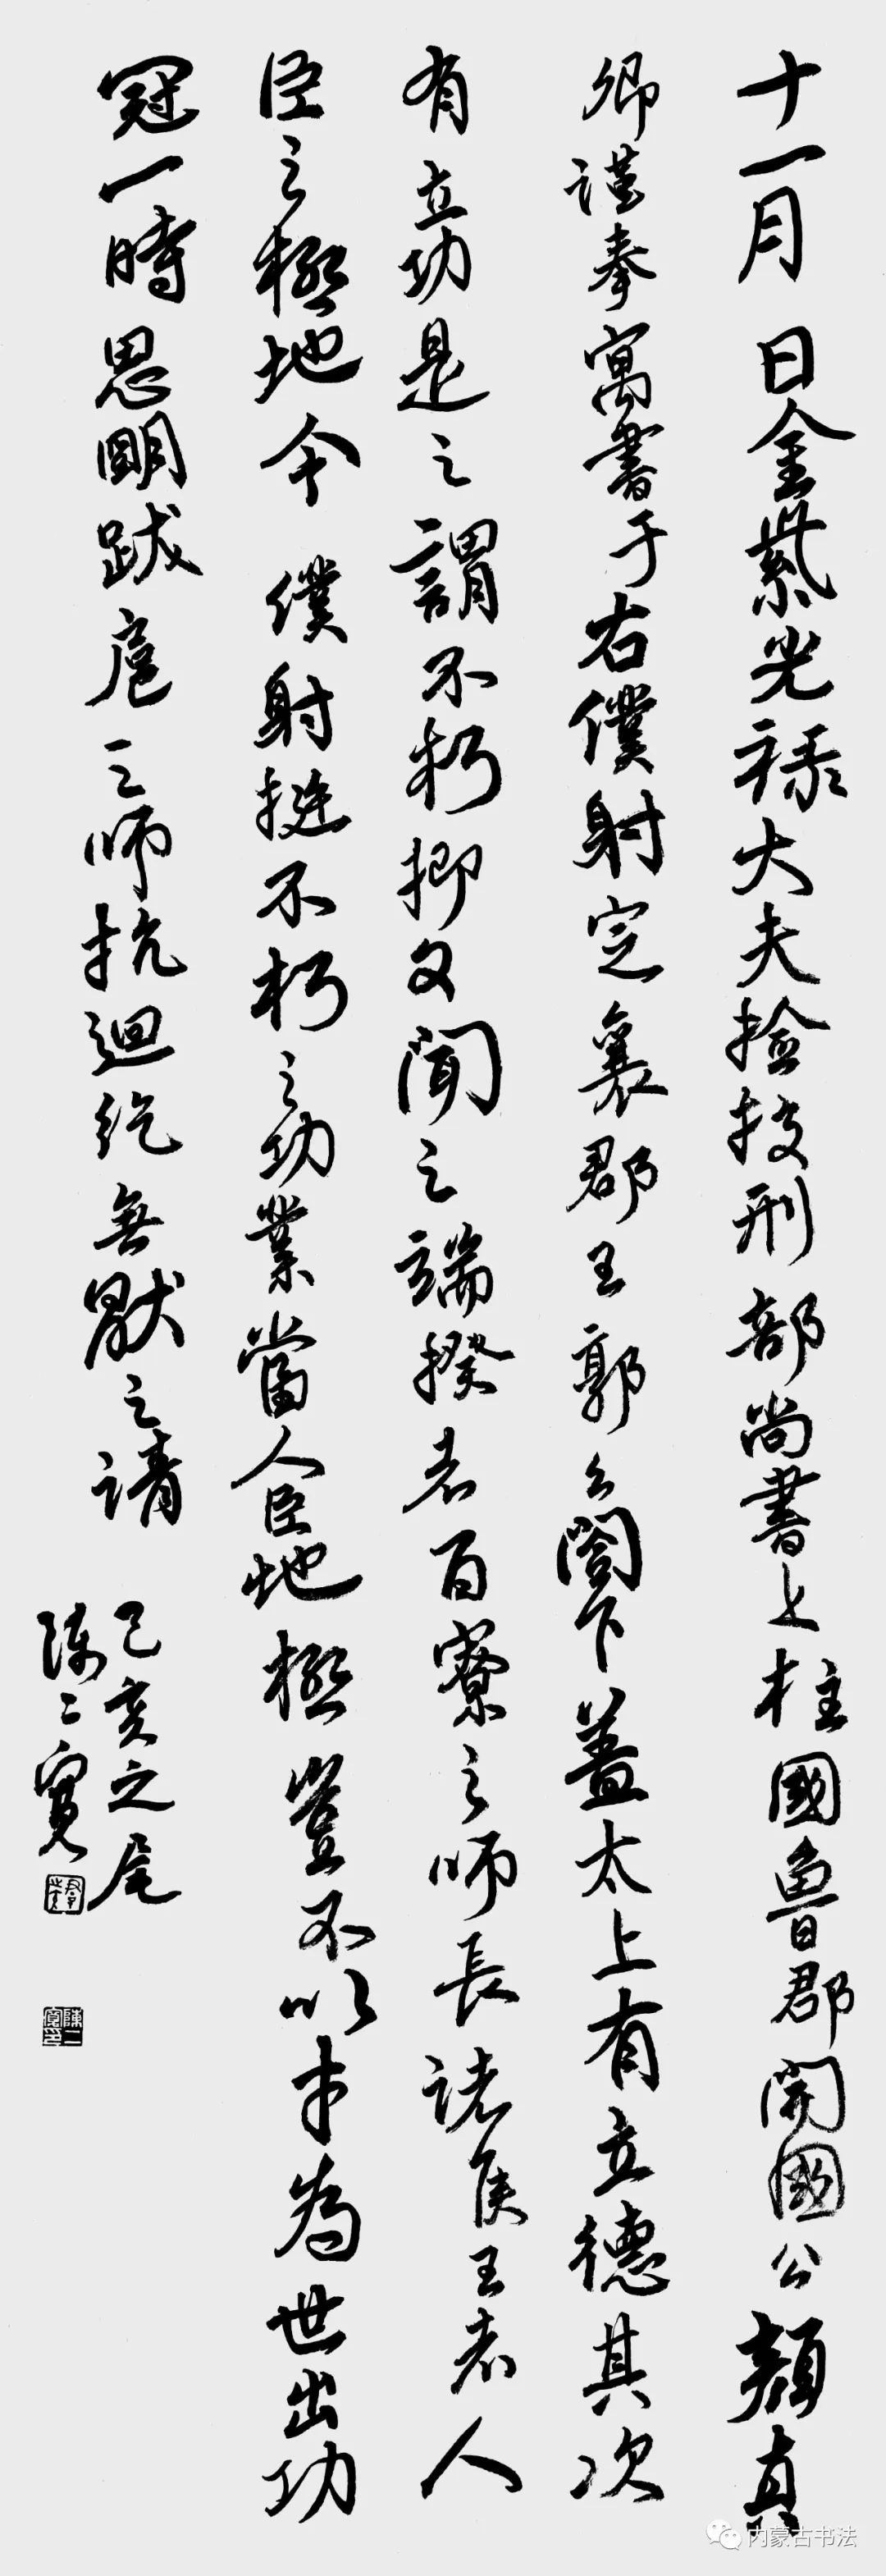 十一月日金紫光祿大夫撿挍刑部尚書上柱國魯郡開國公顏真
卿謹奉寓書于右僕射定襄郡王郭公閣下蓋太上有立德其次
有立功是之謂不朽抑又聞之端揆者百寮之師長諸侯王者人
臣之極地今僕射挺不朽之功業當人臣地極豈不以才為世出功
冠一時思明跋扈之師抗迴紇無猒之請
己亥之尾
陳二寬
陳二寬印
内蒙古书法